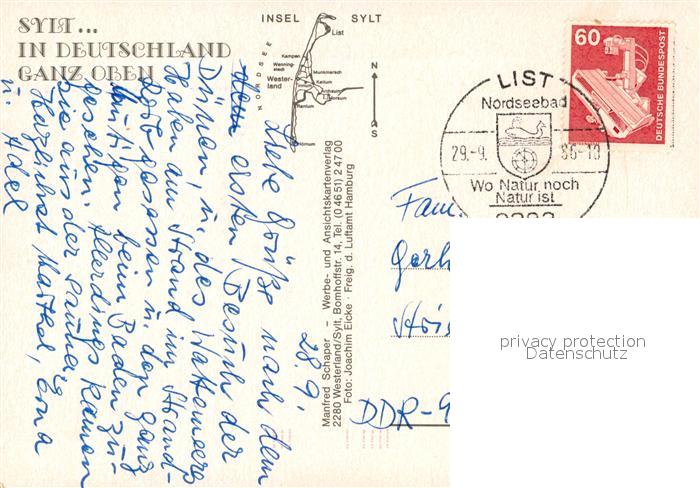 SYLT ...
IN DEUTSCHLAND
GANZ OBEN
INSEL SYLT
NORDSEE
List
Kampen
Wenningstedt
Westerland
Munkmarsch
Keitum
Archsum
Morsum
Rantum
Hörnum
N
S
28.9.
Liebe Grüße nach dem
dem ersten Besuch der
Dünen, u. des Wattenmeers
Haben am Strand im Strand-
korb gesessen u. den ganz
mutigen beim Baden zu-
gesehen. Allerdings kamen
sie aus der Sauna.
Herzlichst Martel, Erna
u. Adel
Manfred Schaper – Werbe- und Ansichtskartenverlag
2280 Westerland/Sylt, Bomhoffstr. 14, Tel. (04651) 24700
Foto: Joachim Eicke · Freig. d. Luftamt Hamburg
60
DEUTSCHE BUNDESPOST
LIST
Nordseebad
29.-9. 86-18
Wo Natur noch
Natur ist
2282
Fam.
Gerh
DDR-9
privacy protection
Datenschutz